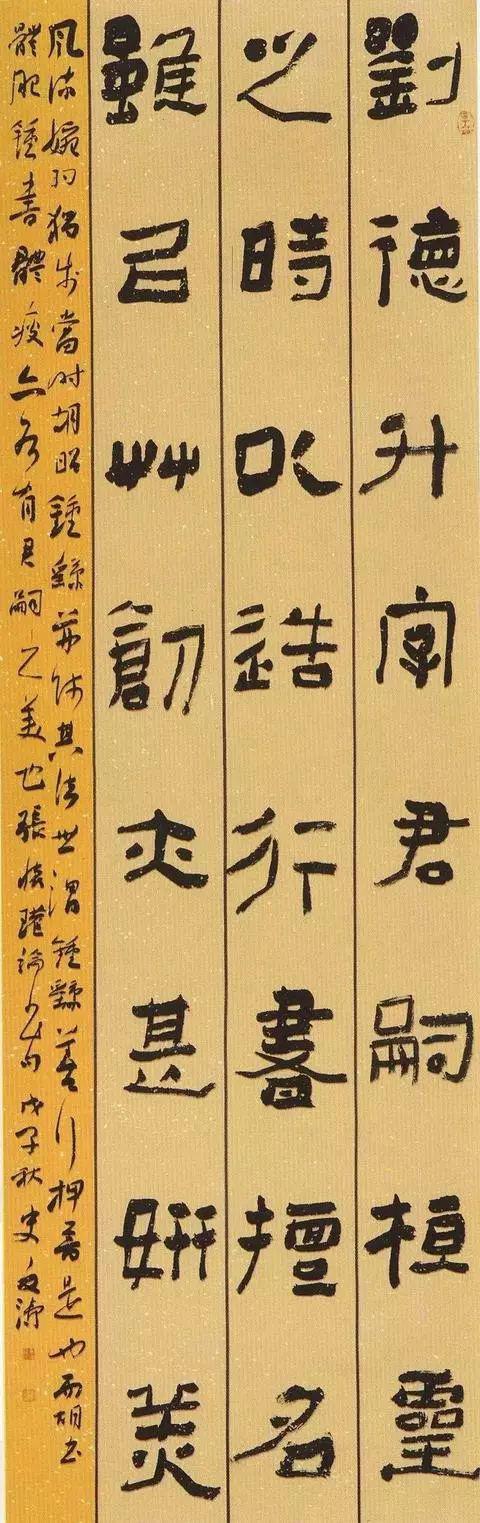 劉德升字君嗣桓靈
之時以造行書擅名
雖㠯艸創亦甚妍美
風流婉約獨步當时胡昭鍾繇并師其法世謂鍾繇善行押書是也而胡書
體肥鍾書體瘦亦各有君嗣之美也張懷瓘論書句戊子秋史濤